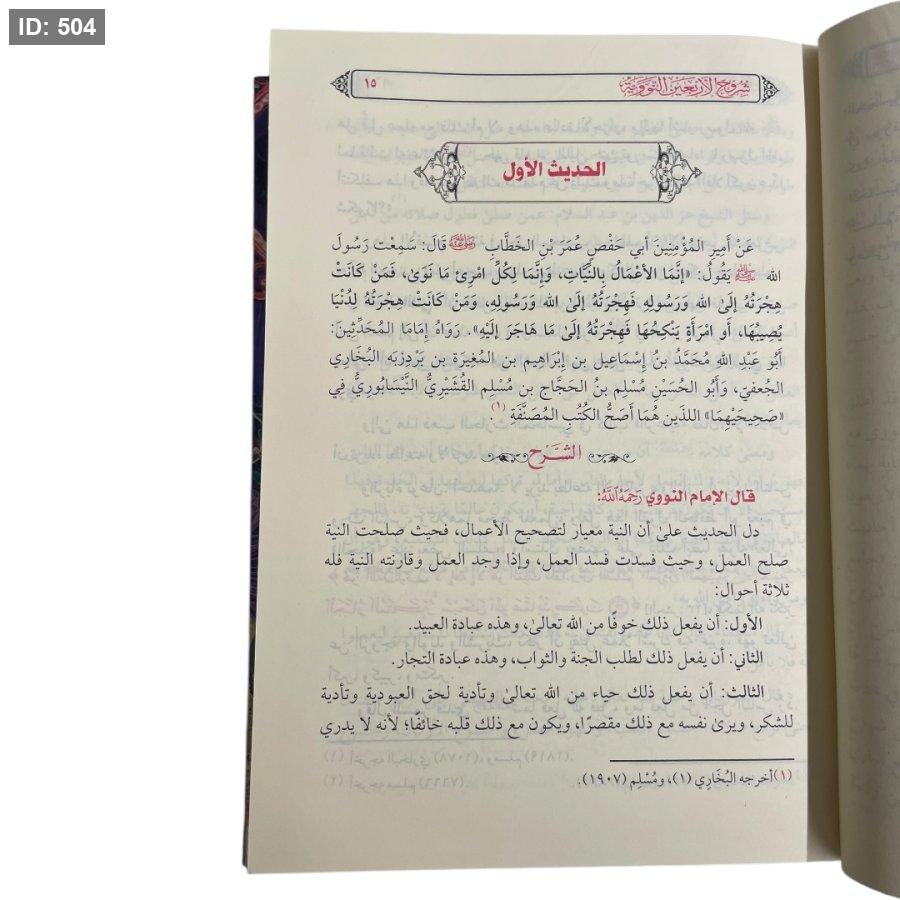 ID: 504
شروح الأربعين النووية
١٥
الحديث الأول
عَنْ أَمِيرِ المُؤْمِنِينَ أَبي حَفْصٍ عُمَرَ بْنِ الخَطَّابِ رضي الله عنه قَالَ: سَمِعْت رَسُولَ
الله ﷺ يَقُولُ: «إنَّمَا الأعْمَالُ بِالنِّيَّاتِ، وَإِنَّمَا لِكُلِّ امْرِئٍ مَا نَوَى، فَمَنْ كَانَتْ
هِجْرَتُهُ إلَى الله وَرَسُولِهِ فَهِجْرَتُهُ إلَى الله وَرَسُولِهِ، وَمَنْ كَانَتْ هِجْرَتُهُ لِدُنْيَا
يُصِيبُهَا، أَو امْرَأَةٍ يَنْكِحُهَا فَهِجْرَتُهُ إلَى مَا هَاجَرَ إلَيْهِ». رَوَاهُ إمَامَا المُحَدِّثِينَ:
أَبُو عَبْدِ اللهِ مُحَمَّدُ بنُ إِسْمَاعِيل بن إِبْرَاهِيم بن المُغِيرَة بن بَرْدِزبَه البُخَارِي
الجُعفيّ، وَأَبُو الحُسَيْنِ مُسْلِم بنُ الحَجَّاج بن مُسْلِم القُشَيْرِيُّ النَّيْسَابُورِيُّ فِي
«صَحِيحَيْهِمَا» اللذَينِ هُمَا أَصَحُّ الكُتُبِ المُصَنَّفَةِ (١).
الشرح
قال الإمام النووي رَحِمَهُ اللَّهُ:
دل الحديث على أن النية معيار لتصحيح الأعمال، فحيث صلحت النية
صلح العمل، وحيث فسدت فسد العمل، وإذا وجد العمل وقارنته النية فله
ثلاثة أحوال:
الأول: أن يفعل ذلك خوفًا من الله تعالى، وهذه عبادة العبيد.
الثاني: أن يفعل ذلك لطلب الجنة والثواب، وهذه عبادة التجار.
الثالث: أن يفعل ذلك حياء من الله تعالى وتأدية لحق العبودية وتأدية
للشكر، ويرى نفسه مع ذلك مقصرًا، ويكون مع ذلك قلبه خائفًا؛ لأنه لا يدري
(١) أخرجه البُخَارِي (١)، ومُسْلِم (١٩٠٧).